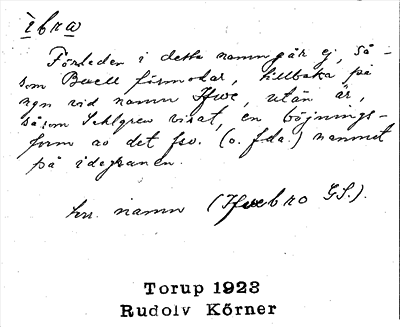 ibra
Förleden i detta namn går ej, så-
som Buell förmodar, tillbaka på
ngn vid namn Ifwe, utan är,
såsom Sahlgren visat, en böjnings-
form av det fsv. (o. fda.) namnet
på idegranen.
hn. namn (Ifvebro GS.).
Torup 1923
Rudolv Körner